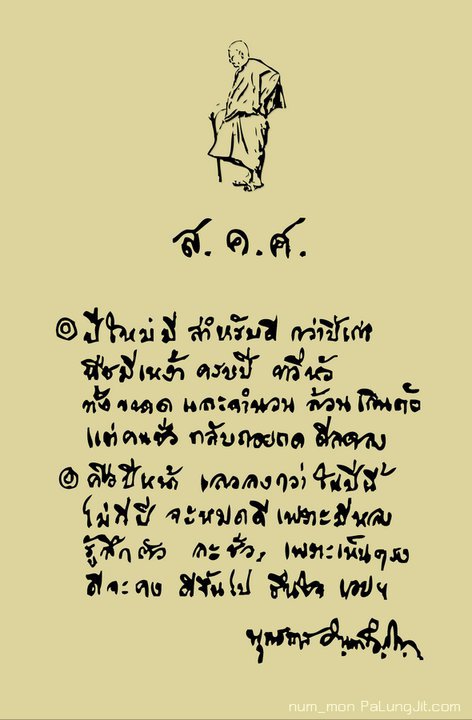 ส.ค.ศ.
๏ ปีใหม่มี สำหรับดี กว่าปีเก่า
พืชมีเหง้า ครบปี ทวีหัว
ทั้งขนาด และจำนวน ล้วน
แต่คนชั่ว กลับถอยถด ดีลดลง
๏ คือปีหน้า เลวลงกว่า ในปีนี้
ไม่กี่ปี จะหมดดี เพราะมีหลง
รู้สึกตัว ละชั่ว, เพราะเห็นตรง
ดีจะคง ดีขึ้นไป ชื่นใจ เอยฯ
พุทธทาส อินทปัญโญ
num_mon PaLungJit.com